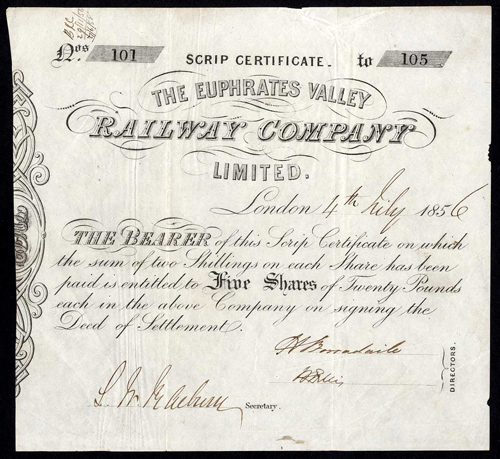 Nos 101 SCRIP CERTIFICATE. to 105
THE EUPHRATES VALLEY
RAILWAY COMPANY
LIMITED.
London 4th July 1856
THE BEARER of this Scrip Certificate on which
the sum of two Shillings on each Share has been
paid is entitled to Five Shares of Twenty Pounds
each in the above Company on signing the
Deed of Settlement.
DIRECTORS.
Secretary.